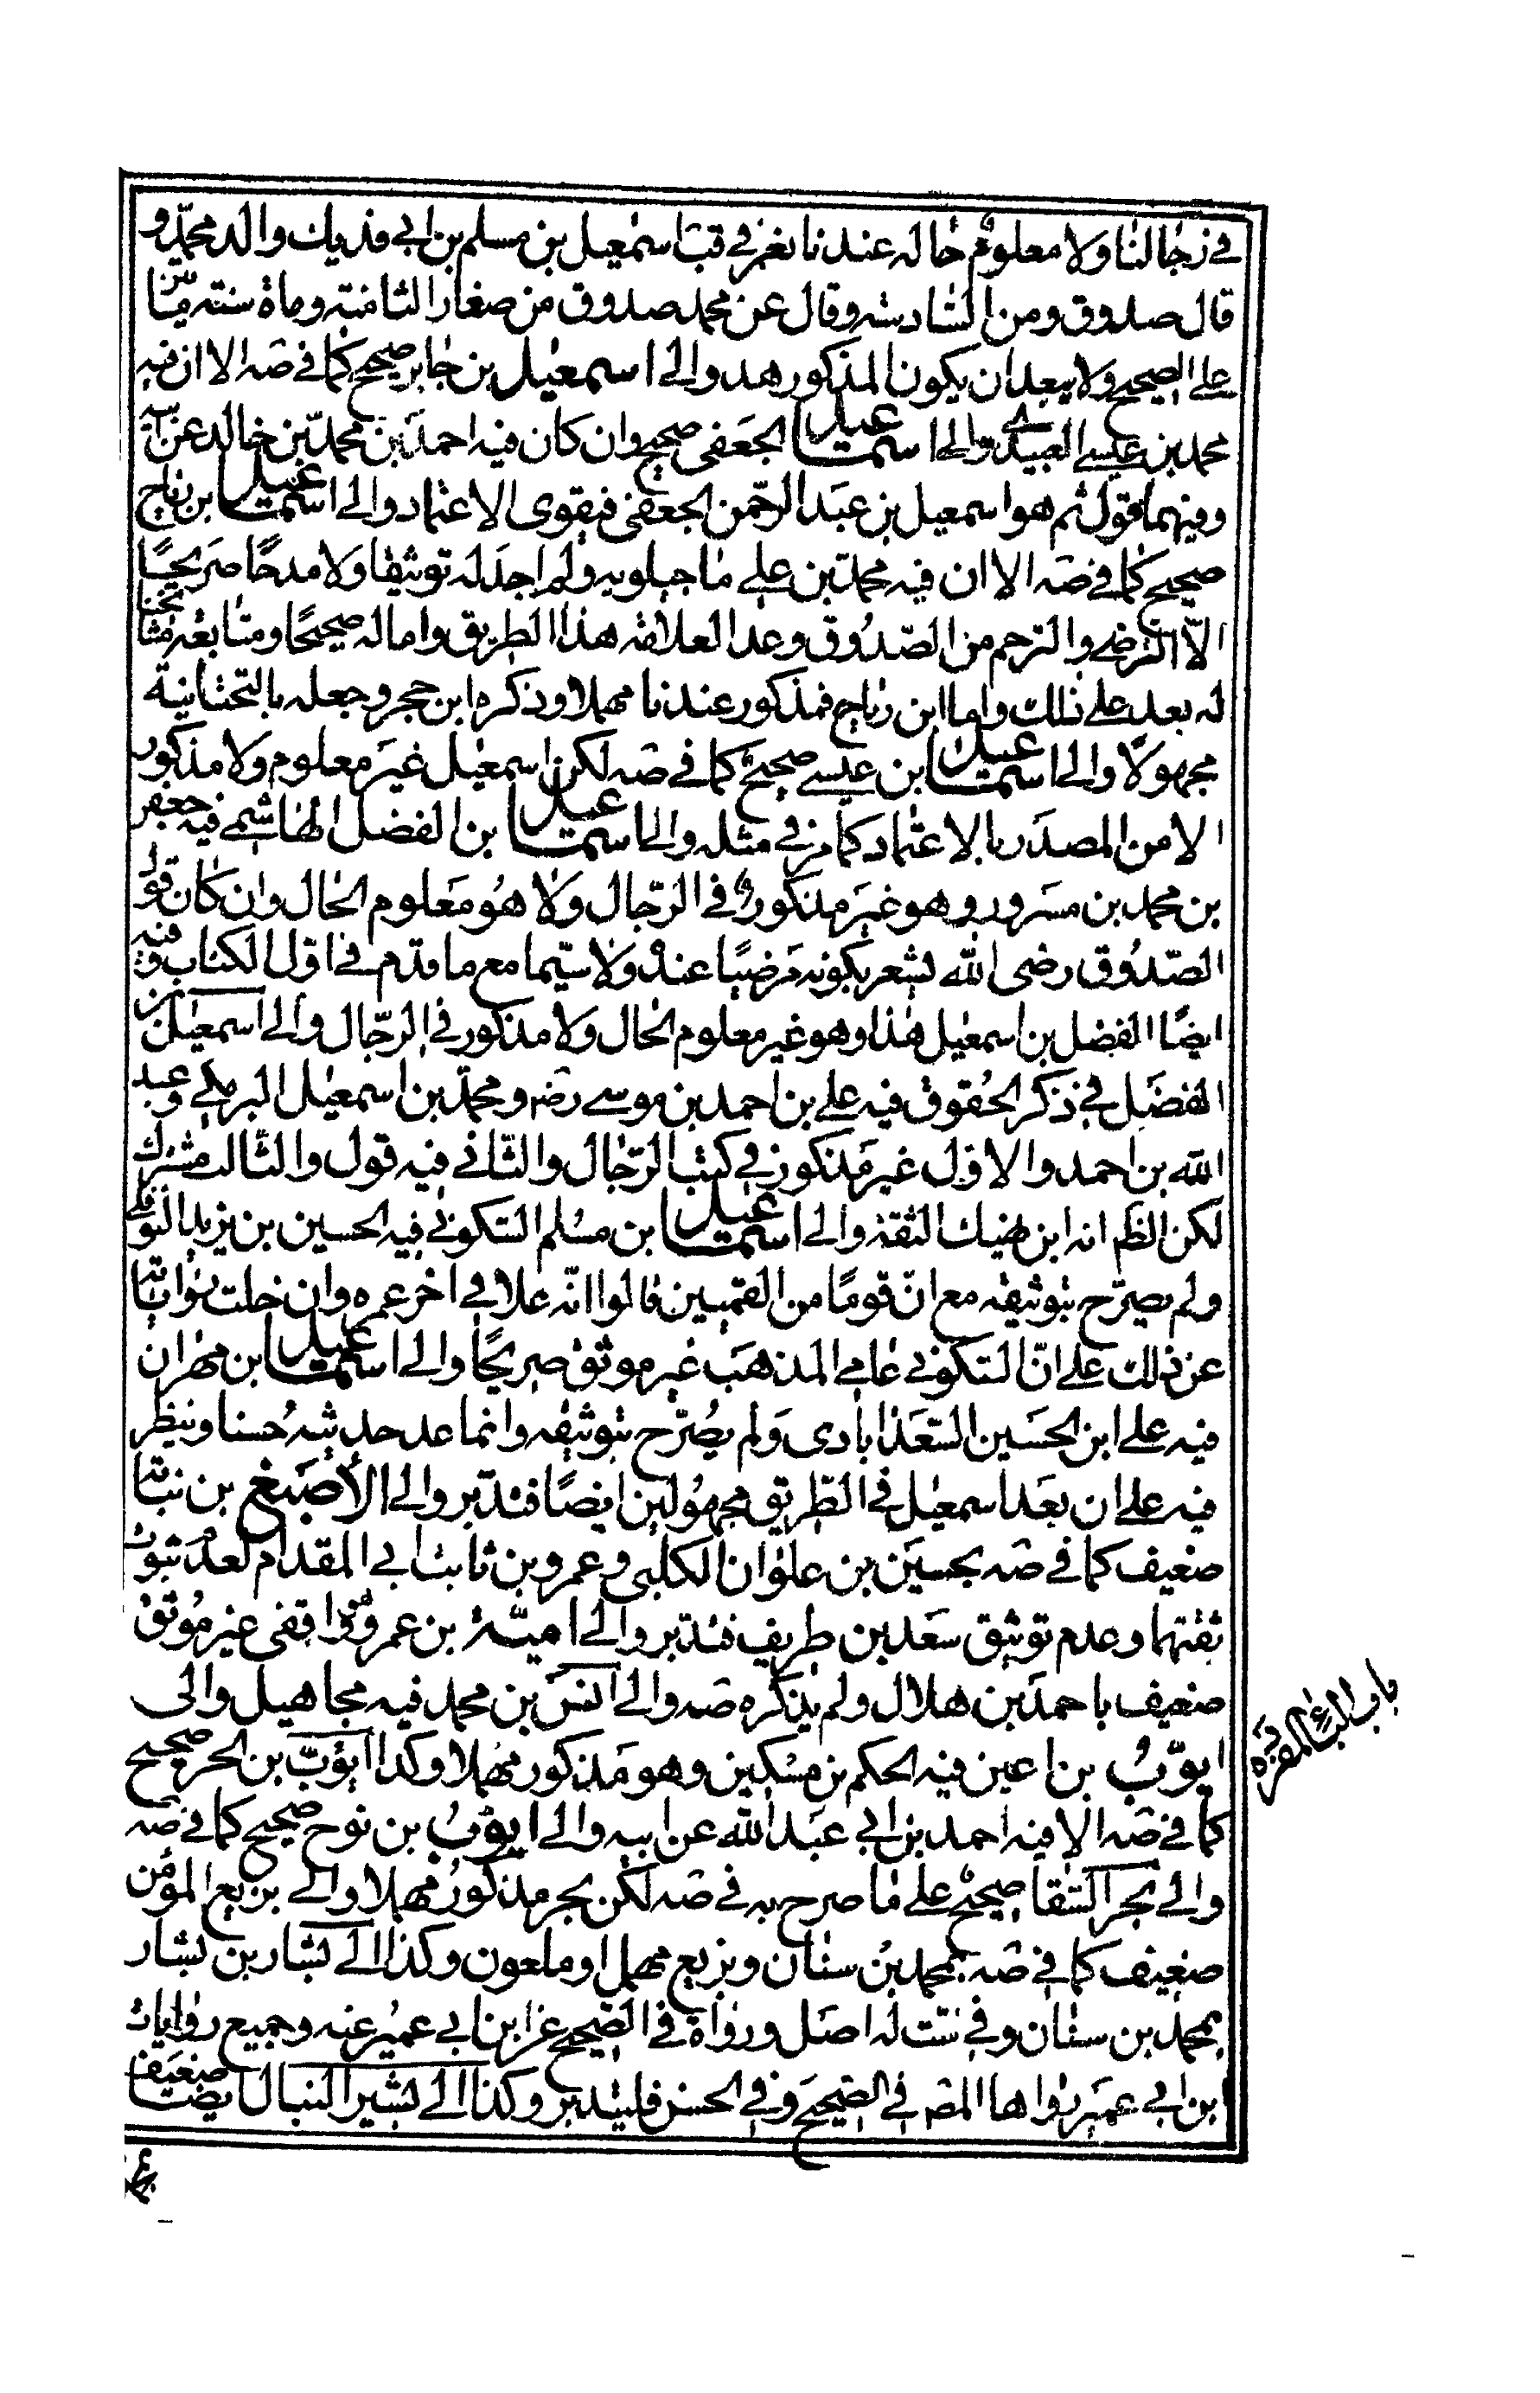 في رجالنا ولا معلوم حاله عندنا نعم في قب اسمعيل بن مسلم بن ابي فديك والد محمد و
قال صدوق ومن السادسة وقال عن محمد صدوق من صغار الثامنة وماة سنة مأتين
على الصحيح ولا يبعد ان يكون المذكور هد والى اسمعيل بن جابر صحيح كما في صه الا ان فيه
محمد بن عيسى العبيدي والى اسمعيل الجعفى صحيح وان كان فيه احمد بن محمد بن خالد عن ابيه
وفيهما قول ثم هو اسمعيل بن عبد الرحمن الجعفى فيقوى الاعتماد والى اسمعيل بن رباح
صحيح كما في صه الا ان فيه محمد بن على ماجيلويه ولم اجد له توثيقا ولا مدحا صريحا
الا الترضى والترحم من الصدوق وعد العلامة هذا الطريق وامثاله صحيحا ومتابعة مشايخنا
له بعد على ذلك واما ابن رباح فمذكور عندنا مهملا وذكره ابن حجر وجعله بالتحتانية
مجهولا والى اسمعيل ابن عيسى صحيح كما في صه لكن اسمعيل غير معلوم ولا مذكور
الا من المصدر بالاعتماد كما مر في مثله والى اسمعيل بن الفضل الهاشمي فيه جعفر
بن محمد بن مسرور وهو غير مذكور في الرجال ولا هو معلوم الحال وان كان قول
الصدوق رضى الله يشعر بكونه مرضيا عنده ولا سيما مع ما قدم في اول الكتاب وفيه
ايضا الفضل بن اسمعيل هذا وهو غير معلوم الحال ولا مذكور في الرجال والى اسمعيل بن
الفضل في ذكر الحقوق فيه على بن احمد بن موسى رضه ومحمد بن اسمعيل البرمكي وعبد
الله بن احمد والاول غير مذكور في كتب الرجال والثاني فيه قول والثالث مشترك
لكن الظم انه ابن نهيك الثقة والى اسمعيل ابن مسلم السكوني فيه الحسين بن يزيد النوفلى
ولم يصرح بتوثيقه مع ان قوما من القميين قالوا انه غلا في اخر عمره وان خلت رواياته
عن ذلك على ان السكوني عامي المذهب غير موثوق صريحا والى اسمعيل ابن مهران
فيه على ابن الحسين السعدابادى ولم يصرح بتوثيقه وانما عد حديثه حسنا وينظر
فيه على ان بعد اسمعيل في الطريق مجهولين ايضا فتدبر والى الأصبغ بن نباتة
ضعيف كما في صه بحسين بن علوان الكلبى وعمرو بن ثابت ابي المقدام لعدم ثبوت
ثقتهما وعدم توثيق سعد بن طريف فتدبر والى امية بن عمرو واقفى غير موثق
ضعيف باحمد بن هلال ولم يذكره صه والى انس بن محمد فيه مجاهيل والى
ايوب بن اعين فيه الحكم بن مسكين وهو مذكور مهملا وكذا ايوب بن الحر صحيح
كما في صه الا فيه احمد بن ابي عبد الله عن ابيه والى ايوب بن نوح صحيح كما في صه
والى بحر السقا صحيح على ما صرح به في صه لكن بحر مذكور مهملا والى بزيع المؤذن
ضعيف كما في صه بمحمد بن سنان وبزيع مهمل او ملعون وكذا الى بشار بن بشار
بمحمد بن سنان وفي ست له اصل ورواه في الصحيح عن ابن ابي عمير عنه وجميع روايات
ابن ابي عمير رواها المصه في الصحيح وفي الحسن فليتدبر وكذا الى بشير النبال ايضا ضعيف
باب الباء المفردة